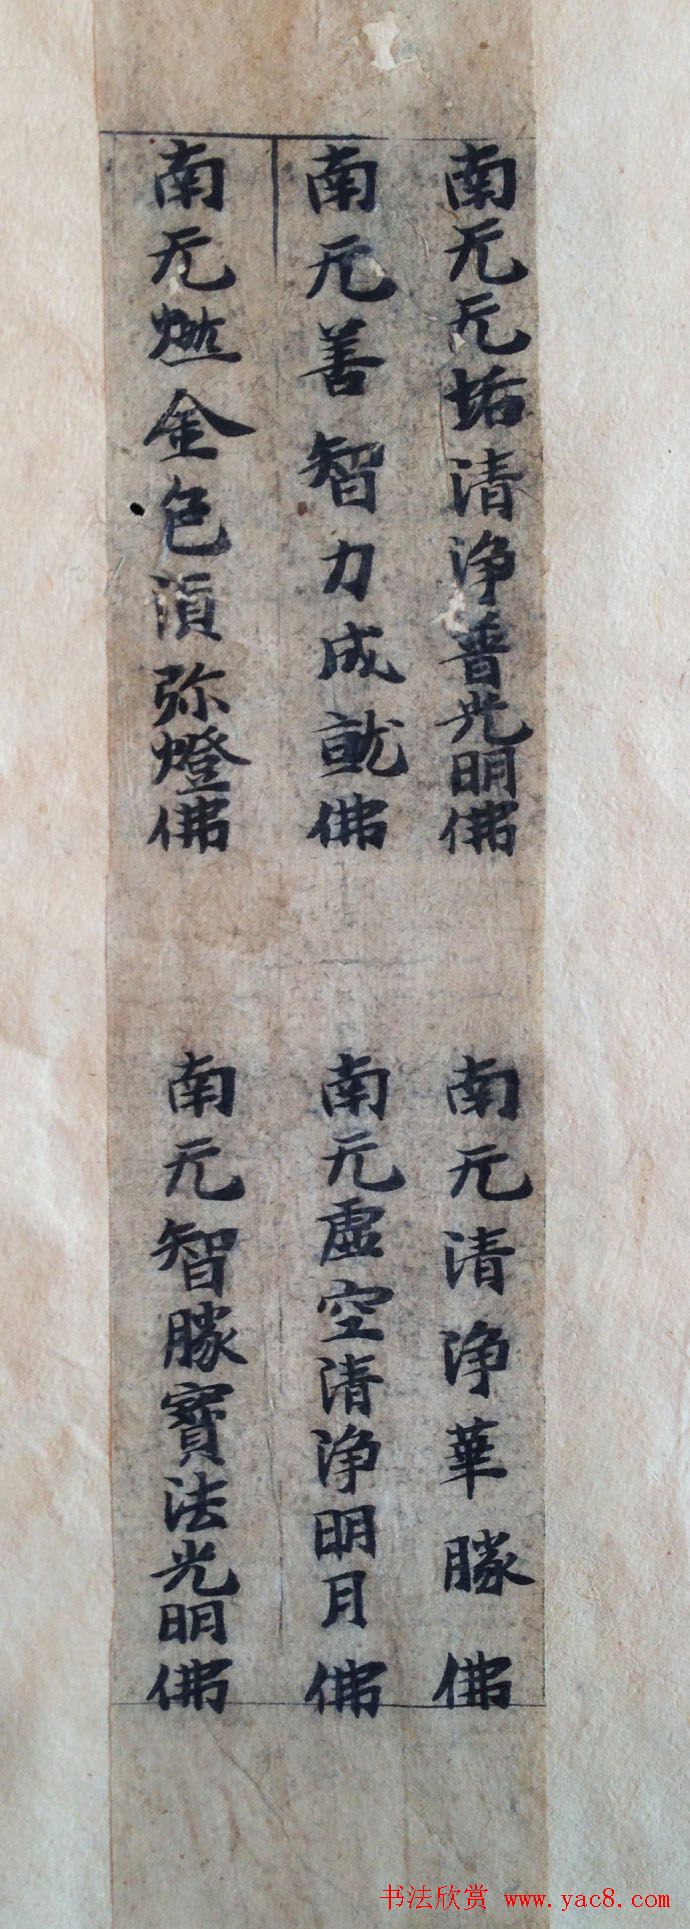 南无无垢清净普光明佛
南无清净華勝佛
南无善智力成就佛
南无虚空清净明月佛
南无燃金色須弥燈佛
南无智勝寶法光明佛
书法欣赏 www.yac8.com